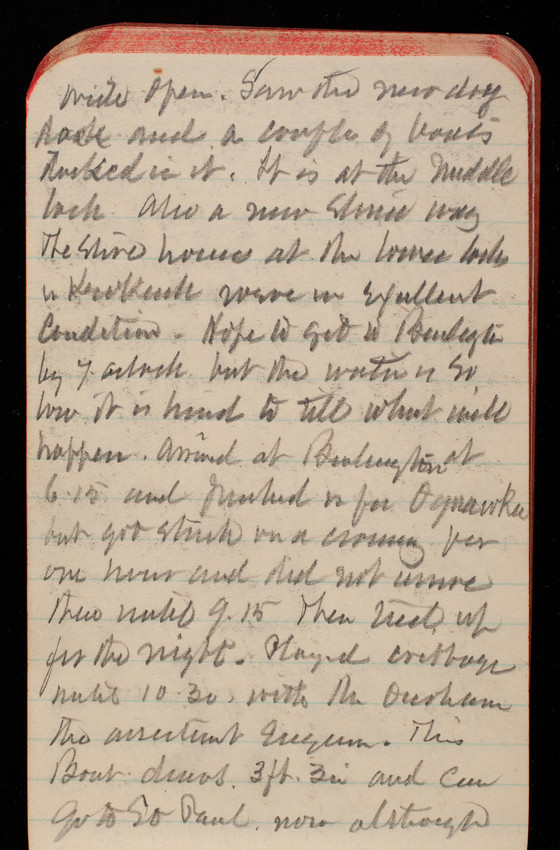 wide open. Saw the new dry
dock and a couple of boats
docked in it. It is at the middle
lock also a new way
The Stone houses at the lower lock
in Keokuk were in Exellent
Condition. Hope to get to Burlington
by 7 oclock but the water is so
low it is hard to tell what will
happen. Arrived at Burlington at
6.15 and pushed on for Oquawka
but got stuck on a crossing for
one hour and did not arrive
there until 9.15 Then tied up
for the night. Played cribbage
until 10.30. with Mr Durham
the assistant Engineer. This
Boat draws. 3ft. 3in and can
go to St Paul. now although